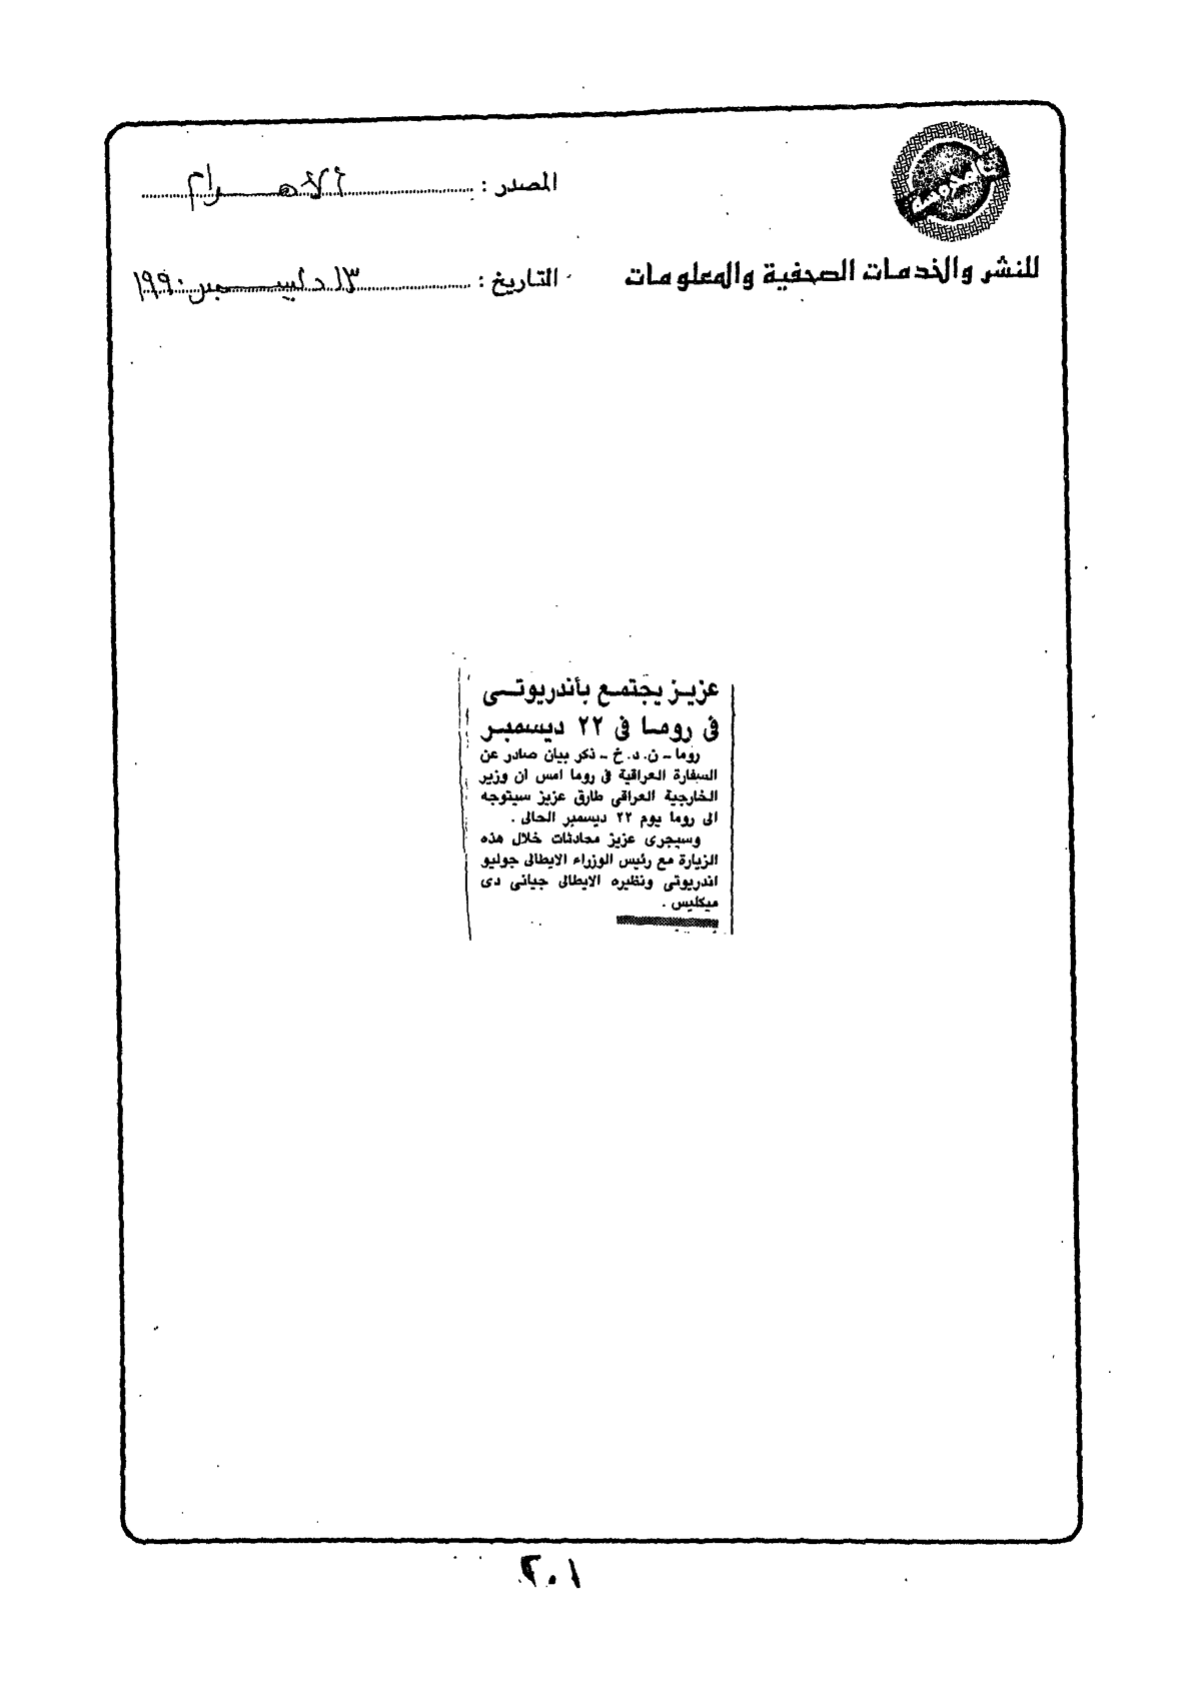 المصدر : الأهرام
للنشر والخدمات الصحفية والمعلومات
التاريخ : ١٣ ديسمبر ١٩٩٠
عزيز يجتمع بأندريوتى
فى روما فى ٢٢ ديسمبر
روما - ن. د. خ - ذكر بيان صادر عن
السفارة العراقية فى روما امس ان وزير
الخارجية العراقى طارق عزيز سيتوجه
الى روما يوم ٢٢ ديسمبر الحالى .
وسيجرى عزيز محادثات خلال هذه
الزيارة مع رئيس الوزراء الايطالى جوليو
اندريوتى ونظيره الايطالى جيانى دى
ميكليس .